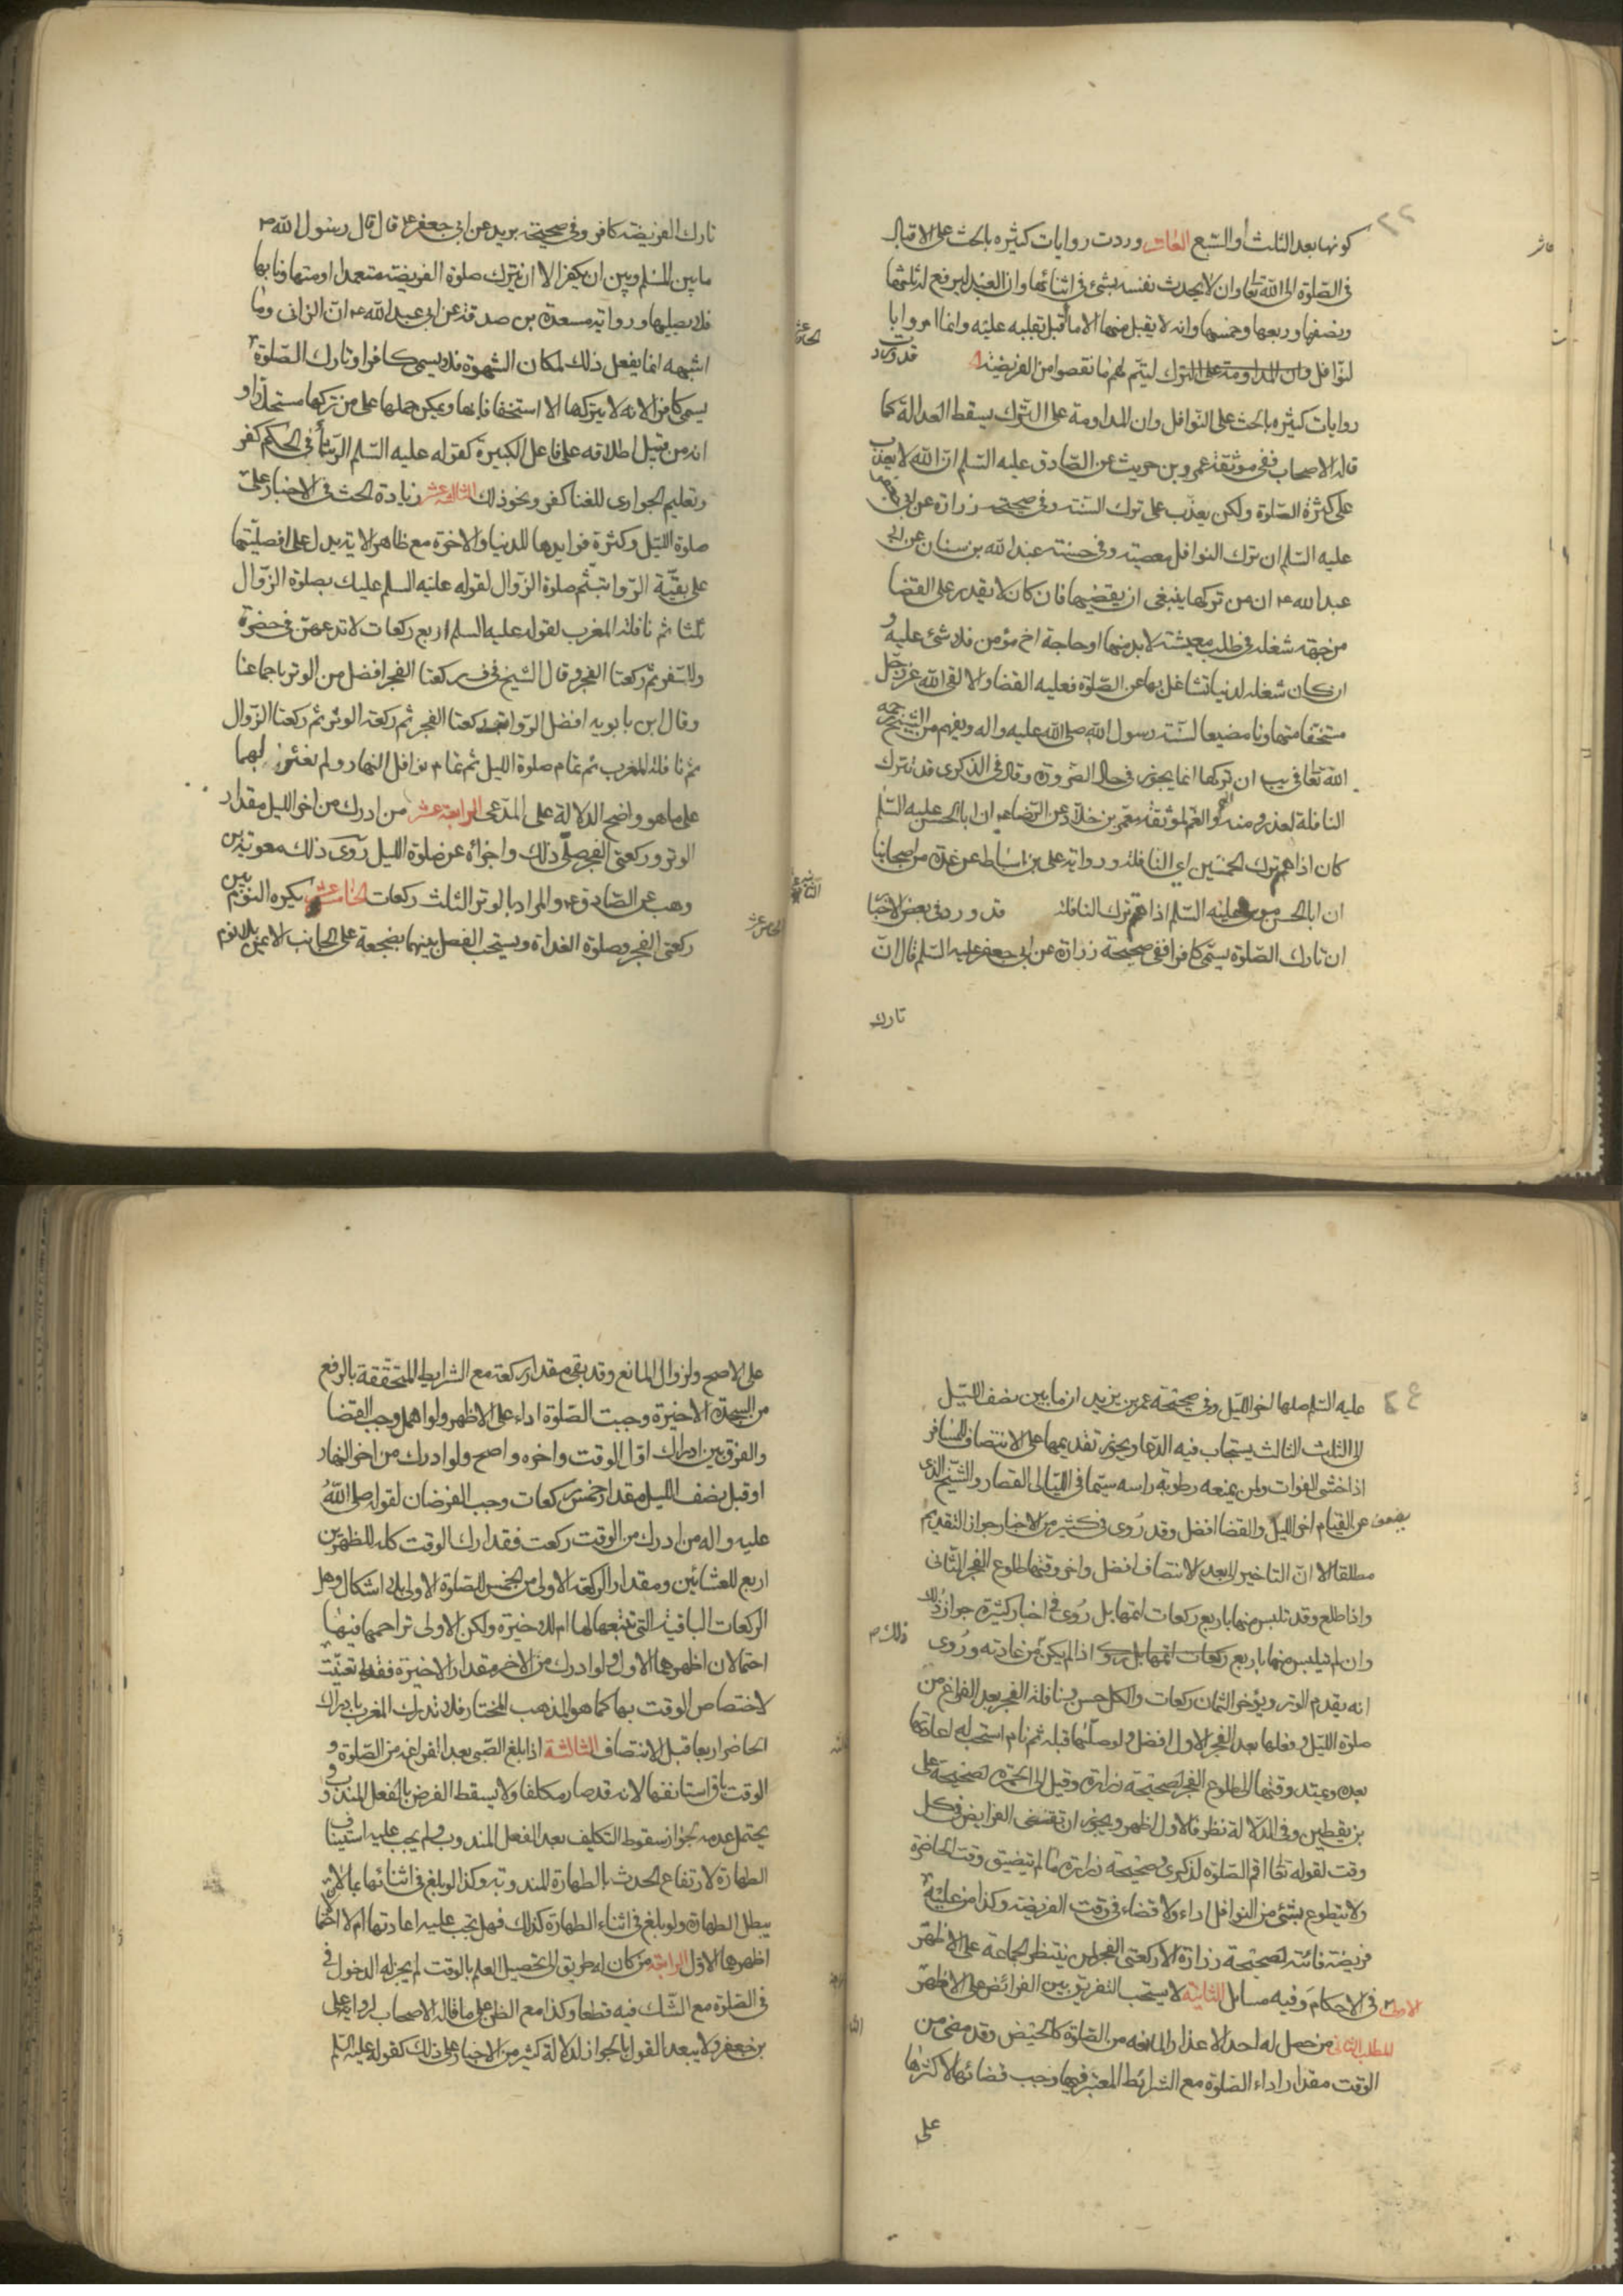 كونها بعد الثلث أو السبع العاشر وردت روايات كثيره بالحث على الاقبال
في الصلوة الى الله تعا وان لا يحدث نفسه بشئ في اثنائها وان العبد ليرفع له ثلثها
ونصفها وربعها وخمسها وانه لا يقبل منها الا ما اقبل بقلبه عليه وانما امروا با
لنوافل وان المداومة على الترك ليتم لهم ما نقصوا من الفريضة قد وردت
روايات كثيره بالحث على النوافل وان المداومة على الترك يسقط العدالة كما
قاله الاصحاب ففى موثقة عمرو بن حريث عن الصادق عليه السلم ان الله لا يعذب
على كثرة الصلوة ولكن يعذب على ترك السنة وفي صحيحة زرارة عن ابي جعفر
عليه السلم ان ترك النوافل معصية وفي حسنة عبد الله بن سنان عن ابي
عبد الله ع ان من تركها ينبغى ان يقضيها فان كان لا يقدر على القضا
من جهة شغله في طلب معيشة لا بد منها او حاجة اخ مؤمن فلا شئ عليه و
ان كان شغله لدنيا تشاغل بها عن الصلوة فعليه القضا والا لقى الله عز وجل
مستخفا متهاونا مضيعا لسنة رسول الله صلى الله عليه واله ويفهم من الشيخ رحمه
الله تعا في يب ان تركها انما يجوز في حال الضرورة وقال في الذكرى قد تترك
النافلة لعذر ومنه الهم والغم لموثقة معمر بن خلاد عن الرضا ع ان ابا الحسن عليه السلم
كان اذا اهتم ترك الخمسين اي النافلة ورواية على بن اسباط عن عدة من اصحابنا
ان ابا الحسن موسى عليه السلم اذا اهتم ترك النافلة قد ورد في بعض الاخبا
ان تارك الصلوة يسمى كافرا ففي صحيحة زرارة عن ابي جعفر عليه السلم قال ان
تارك
عاشر
تارك الفريضة كافر وفي صحيحة بريد عن ابي جعفر ع قال قال رسول الله ص
ما بين المسلم وبين ان يكفر الا ان يترك صلوة الفريضة متعمدا او متهاونا بها
فلا يصليها ورواية مسعدة بن صدقة عن ابي عبد الله ع ان الزانى وما
اشبهه انما يفعل ذلك لمكان الشهوة فلا يسمى كافرا وتارك الصلوة
يسمى كافرا لانه لا يتركها الا استخفافا بها ويمكن حملها على من تركها مستحلا او
انه من قبيل اطلاقه على فاعل الكبيرة كقوله عليه السلم الرشأ في الحكم كفر
وتعليم الجوارى للغنا كفر ونحو ذلك الثالثة عشر زيادة الحث في الاخبار على
صلوة الليل وكثرة فوايدها للدنيا والاخرة مع ظاهر الاية يدل على افضليتها
على بقية الرواتب ثم صلوة الزوال لقوله عليه السلم عليك بصلوة الزوال
ثلثا ثم نافلة المغرب لقوله عليه السلم اربع ركعات لا تدعهن في حضر
ولا سفر ثم ركعتا الفجر وقال الشيخ في ف ركعتا الفجر افضل من الوتر باجماعنا
وقال ابن بابويه افضل الرواتب ركعتا الفجر ثم ركعة الوتر ثم ركعتا الزوال
ثم نافلة المغرب ثم تمام صلوة الليل ثم تمام نوافل النهار ولم نعثر لهما
على ما هو واضح الدلالة على المدعى الرابعة عشر من ادرك من اخر الليل مقدار
الوتر وركعتى الفجر صلى ذلك واجزأه عن صلوة الليل روى ذلك معوية بن
وهب عن الصادق ع والمراد بالوتر الثلث ركعات الخامسة عشر يكره النوم بين
ركعتى الفجر وصلوة الغداة ويستحب الفصل بينهما بضجعة على الجانب الايمن بلا نوم
الخامس عشر
عليه السلم صلها اخر الليل وفي صحيحة عمر بن يزيد ان ما بين نصف الليل
الى الثلث الثالث يستجاب فيه الدعا ويجوز تقديمها على الانتصاف للمسافر
اذا خشى الفوات ولمن يمنعه رطوبة راسه سيما في الليالى القصار والشيخ الذى
يضعف عن القيام اخر الليل والقضا افضل وقد روى في كثير من الاخبار جواز التقديم
مطلقا الا ان التاخير الى بعد الانتصاف افضل واخر وقتها طلوع الفجر الثانى
واذا طلع وقد تلبس منها باربع ركعات اتمها بل روى في اخبار كثيرة جواز ذلك
وان لم يتلبس منها باربع ركعات اتمها بل روى اذا لم يكن من عادته وروى
انه يقدم الوتر ويؤخر الثمان ركعات والكل حسن ونافلة الفجر بعد الفراغ من
صلوة الليل وفعلها بعد الفجر الاول افضل ولو صليها قبله ثم نام استحب له اعادتها
بعده ويمتد وقتها الى طلوع الفجر لصحيحة زرارة وقيل الى الحمرة لصحيحة على
بن يقطين وفي الدلالة نظر فالاول اظهر ويجوز ان تقضى الفرايض في كل
وقت لقوله تعا اقم الصلوة لذكرى وصحيحة زرارة ما لم يتضيق وقت الحاضرة
ولا يتطوع بشئ من النوافل اداء ولا قضاء في وقت الفريضة وكذا من عليه
فريضة فائتة لصحيحة زرارة الا ركعتى الفجر لمن ينتظر الجماعة على الاظهر
الاولى في الاحكام وفيه مسايل الثانية لا يستحب التفريق بين الفرائض على الاظهر
المطلب الثانى من حصل له احد الاعذار المانعه من الصلوة كالحيض وقد مضى من
الوقت مقدار اداء الصلوة مع الشرائط المعتبر فيها وجب قضائها لا اكثرها
على
على الاصح ولو زوال المانع وقد بقى مقدار ركعة مع الشرايط المتحققة بالرفع
من السجدة الاخيرة وجبت الصلوة اداء على الاظهر ولو اهمل وجب القضا
والفرق بين ادراك اول الوقت واخره واضح ولو ادرك من اخر النهار
او قبل نصف الليل مقدار خمس ركعات وجب الفرضان لقوله صلى الله
عليه واله من ادرك من الوقت ركعت فقد ادرك الوقت كله للظهرين
اربع للعشائين ومقدار الركعة الاولى من الخمس للصلوة الاولى بلا اشكال وهل
الركعات الباقية التى تتبعها لها ام للاخيرة ولكن الاولى تزاحمها فيها
احتمالان اظهرهما الاول ولو ادرك من الاخر مقدار الاخيرة فقط تعينت
لاختصاص الوقت بها كما هو المذهب المختار فلا تدرك المغرب بادراك
الحاضر اربعا قبل الانتصاف الثالثة اذا بلغ الصبى بعد الفراغ من الصلوة و
الوقت باق استانفها لانه قد صار مكلفا ولا يسقط الفرض بالفعل المندوب و
يحتمل عدمه لجواز سقوط التكليف بعد الفعل المندوب ولم يجب عليه استيناف
الطهارة لارتفاع الحدث بالطهارة المندوبة وكذا لو بلغ في اثنائها بما لا
يبطل الطهارة ولو بلغ في اثناء الطهارة كذلك فهل يجب عليه اعادتها ام لا احتما
اظهرهما الاول الرابعة من كان له طريق الى تحصيل العلم بالوقت لم يجز له الدخول في
في الصلوة مع الشك فيه قطعا وكذا مع الظن على ما قاله الاصحاب لرواية على
بن جعفر ولا يبعد القول بالجواز لدلالة كثير من الاخبار على ذلك كقوله عليه السلم